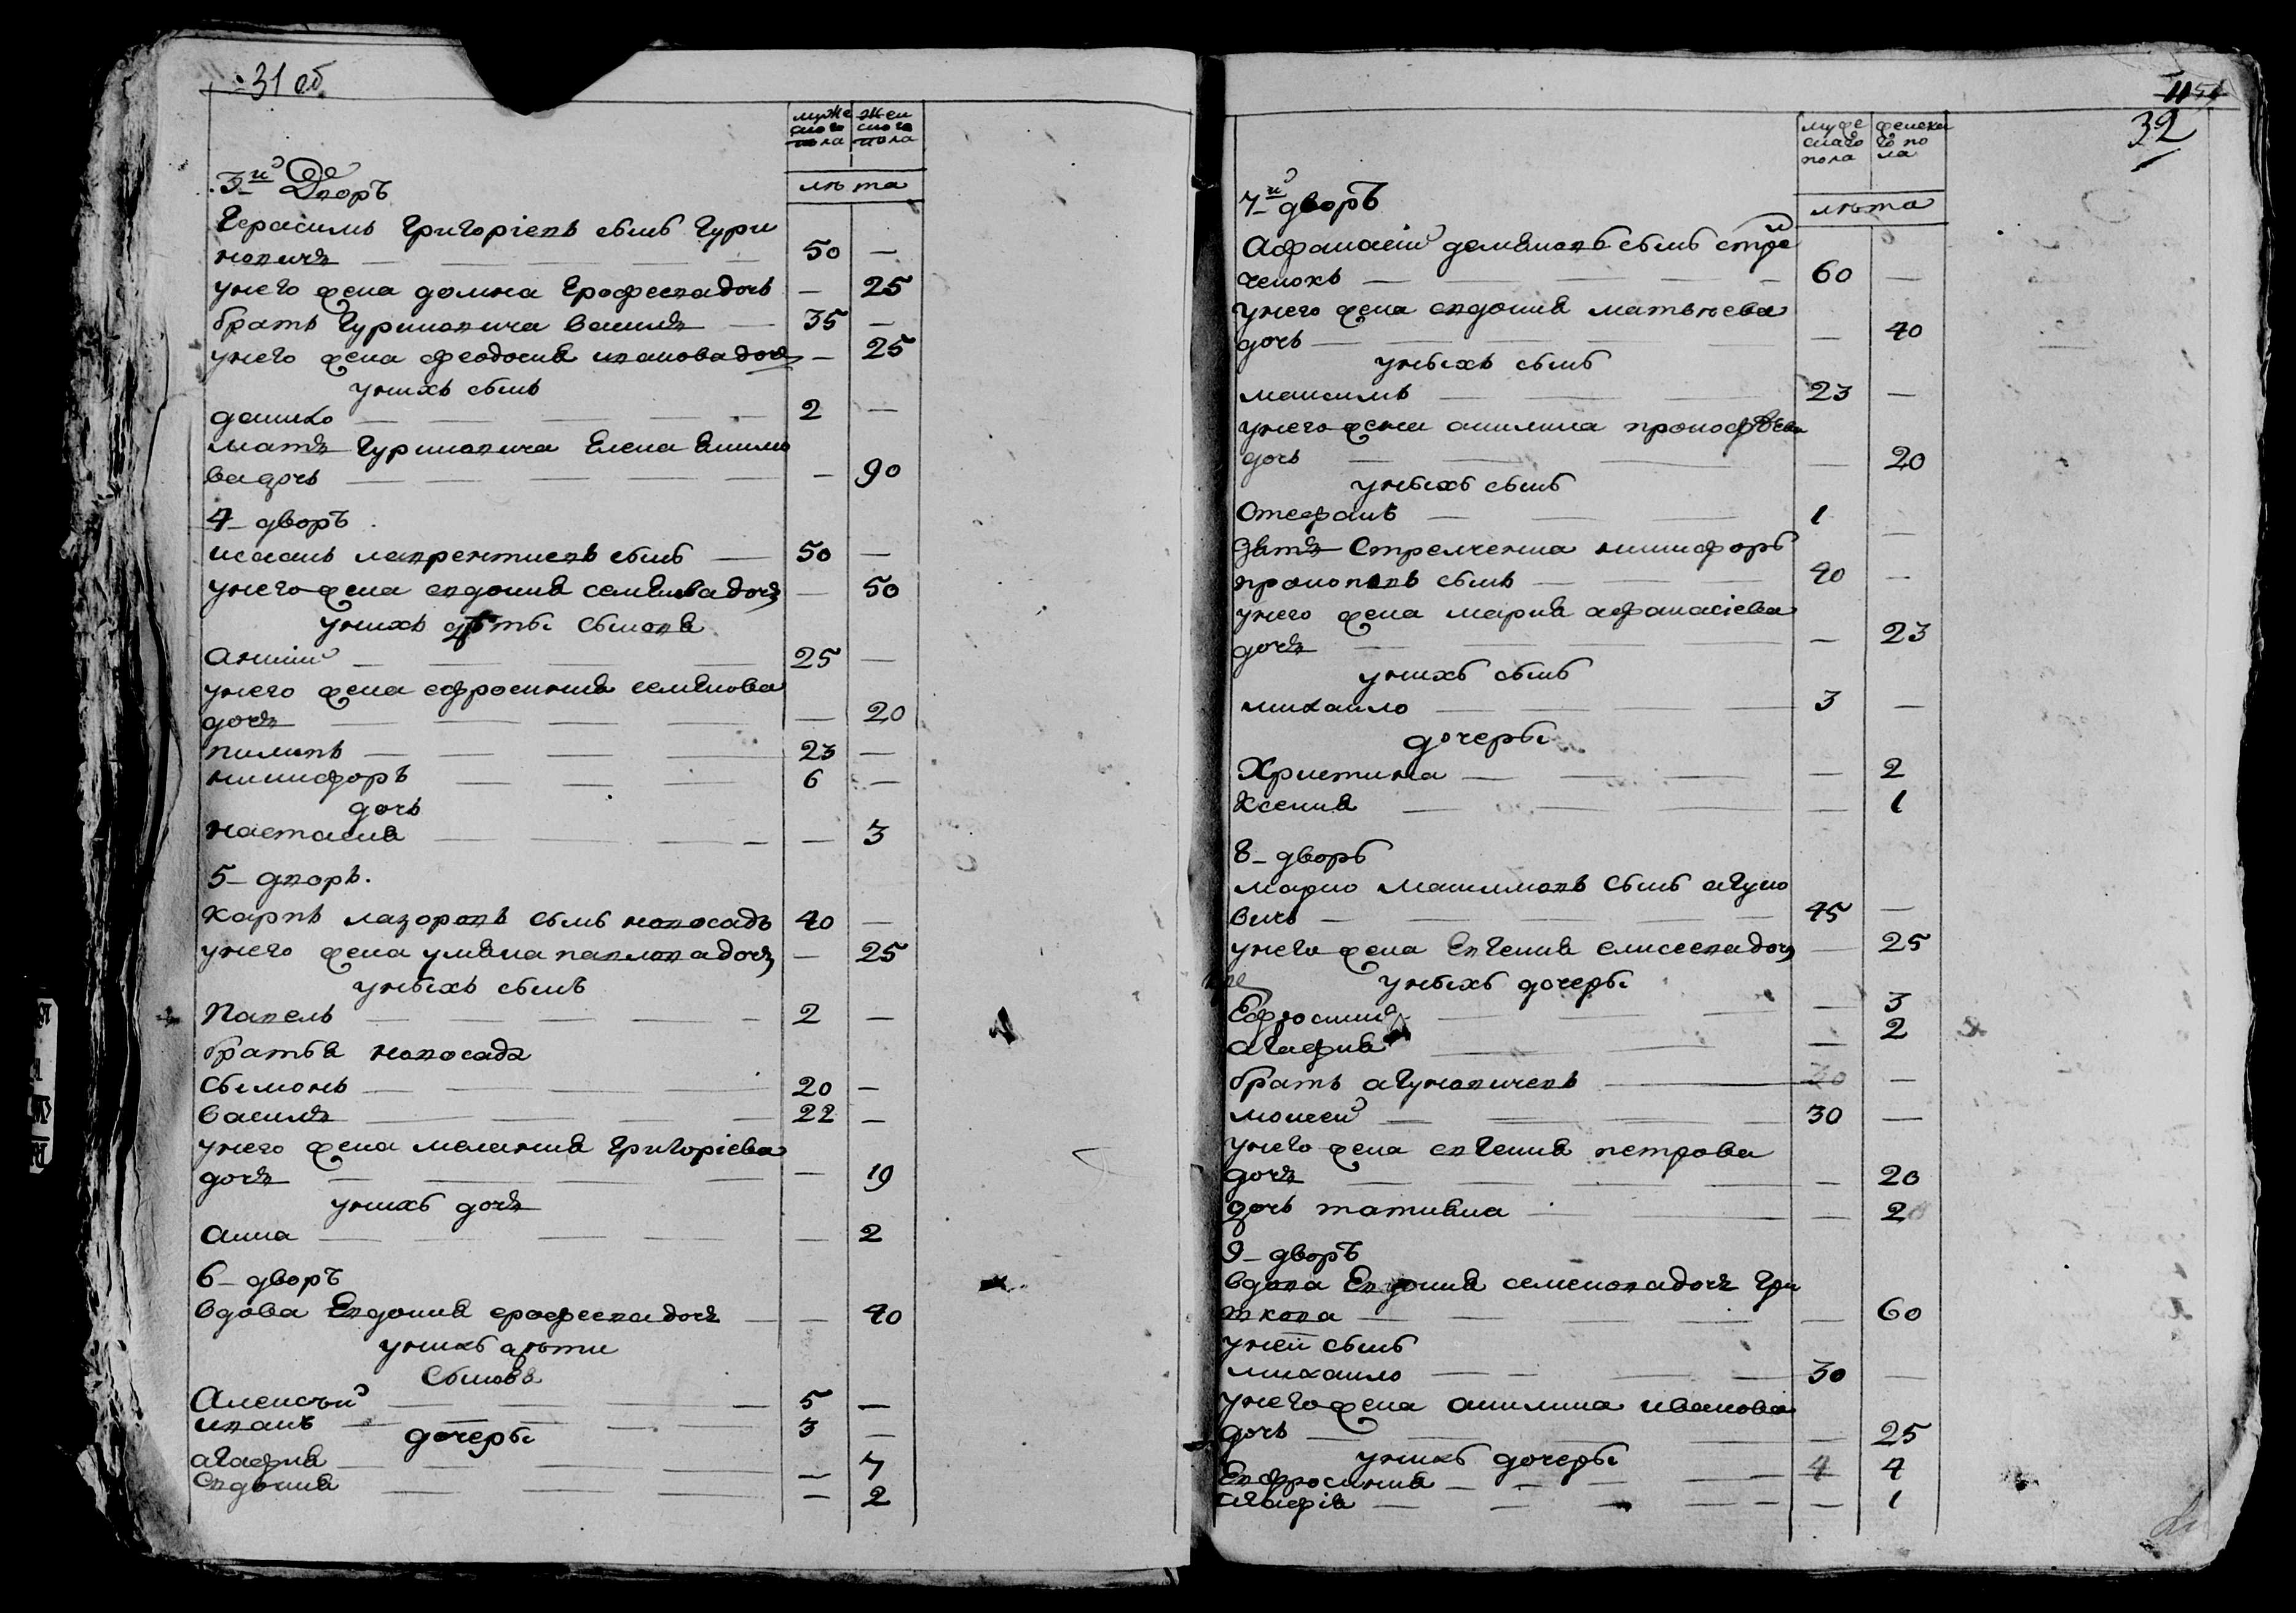 31 об
муже
ского
пола
жен
ского
пола
лѣта
3-й Дворъ
Герасимъ Григоріевъ сынъ Гури
новичъ — 50 —
унего жена домна Ерофеевадочь — 25
братъ Гуриновича василь — 35 —
унего жена феодосия ивановадочь — 25
унихъ сынъ
демко — 2 —
мать Гуриновича Елена Екимо
вадочь — 90
4- дворъ
исаакъ лаврентиевъ сынъ — 50 —
унего жена евдокия семеновадочь — 50
унихъ дѣты сыновя
аникий — 25 —
унего жена ефросиния семенова
дочь — 20
пилипъ — 23 —
никифоръ — 6 —
дочь
настасия — 3
5- дворъ.
карпъ лазоровъ сынъ новосадъ 40 —
унего жена уляна павловадочь — 25
уныхъ сынъ
Павель — 2 —
братья новосада
сымонъ — 20 —
василь — 22 —
унего жена мелания Григоріева
дочь — 19
унихъ дочь
анна — 2
6- дворъ
вдова Евдокия ерофеевадочь — 40
унихъ дѣти
сыновя
Алексѣй — 5 —
иванъ — 3 —
дочеры
агафия — 7
Евдокия — 2
32
муже
скаго
пола
женска
го по
ла
лѣта
7-й дворъ
Афанасий демяновъ сынъ стре
ченокъ — 60 —
унего жена евдокия матвѣева
дочь — 40
уныхъ сынъ
максимъ — 23 —
унего жена акилина прокофѣева
дочь — 20
уныхъ сынъ
Стефанъ — 1 —
зять Стрелченка никифоръ
прокоповъ сынъ — 40 —
унего жена мария афанасіева
дочь — 23
унихъ сынъ
михаило — 3 —
дочеры
Христина — 2
Ксения — 1
8- дворъ
марко максимовъ сынъ агуно
вичъ — 45 —
унего жена Евгения елисеевадочь — 25
уныхъ дочеры
Ефросиния — 3
агафия — 2
братъ агуновичевъ — 30 —
мосей — 30 —
унего жена евгения петрова
дочь — 20
дочь татияна — 2
9- дворъ
вдова Евдокия семеновадочь Гри
шкова — 60
уней сынъ
михаило — 30 —
унего жена акилина иванова
дочь — 25
унихъ дочеры
Евфросиния — 4 4
агафія — 1